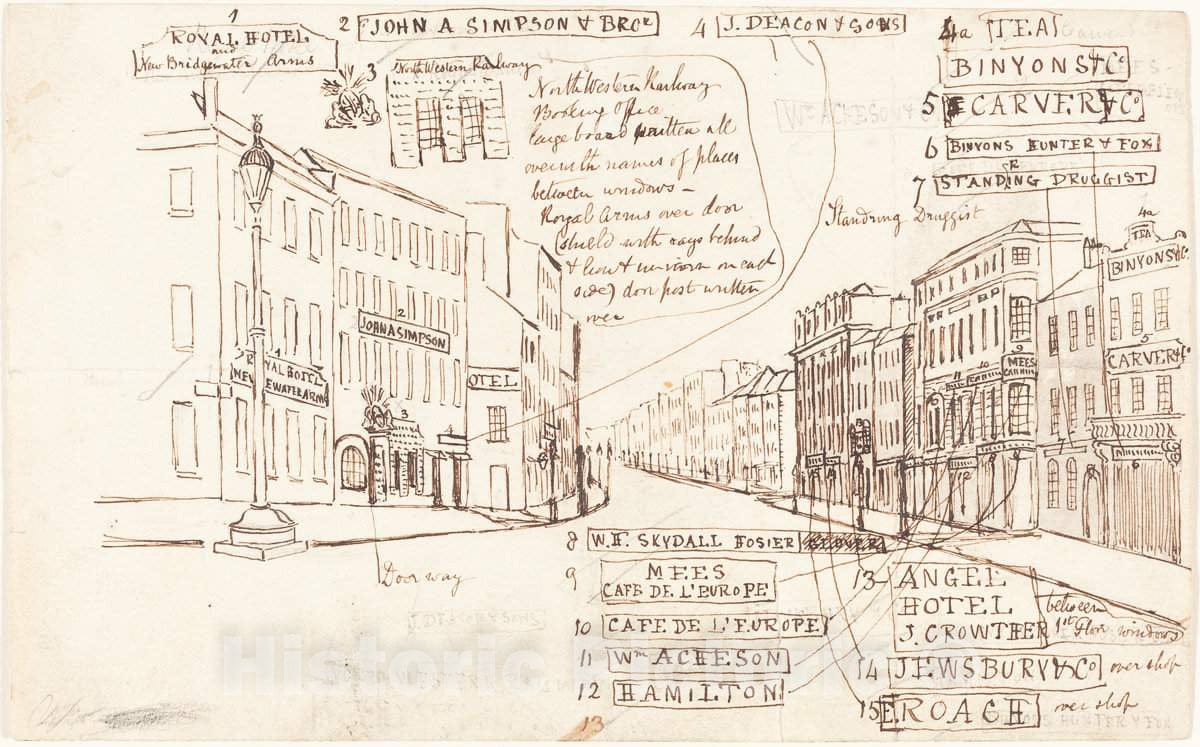 1
ROYAL HOTEL
and
New Bridgewater Arms
2 JOHN A SIMPSON & BROR
4 J. DEACON & SONS
4a TEA
BINYONS & Co
5 CARVER & Co
6 BINYONS HUNTER & FOX
7 STANDRING DRUGGIST
3
North Western Railway
North Western Railway
Booking Office
large board written all
over with names of places
between windows –
Royal Arms over door
(shield with rays behind
& lion & unicorn on each
side) door post written
over
Standring Druggist
4a
TEA
BINYONS & Co
5
CARVER & Co
6
2
JOHN A SIMPSON
1
ROYAL HOTEL
NEW BRIDGEWATER ARMS
3
4
HOTEL
9
MEES
10
11
8
12
15 14
13
Door way
8 W.H. SKYDALL HOSIER
9 MEES
CAFE DE L'EUROPE
10 CAFE DE L'EUROPE
11 Wm ACHESON
12 HAMILTON
13 ANGEL
HOTEL
J. CROWTHER
between
1st Floor windows
14 JEWSBURY & Co over shop
15 E. ROACH over shop
13
Wm ACHESON & C
J DEACON & SONS
Historic